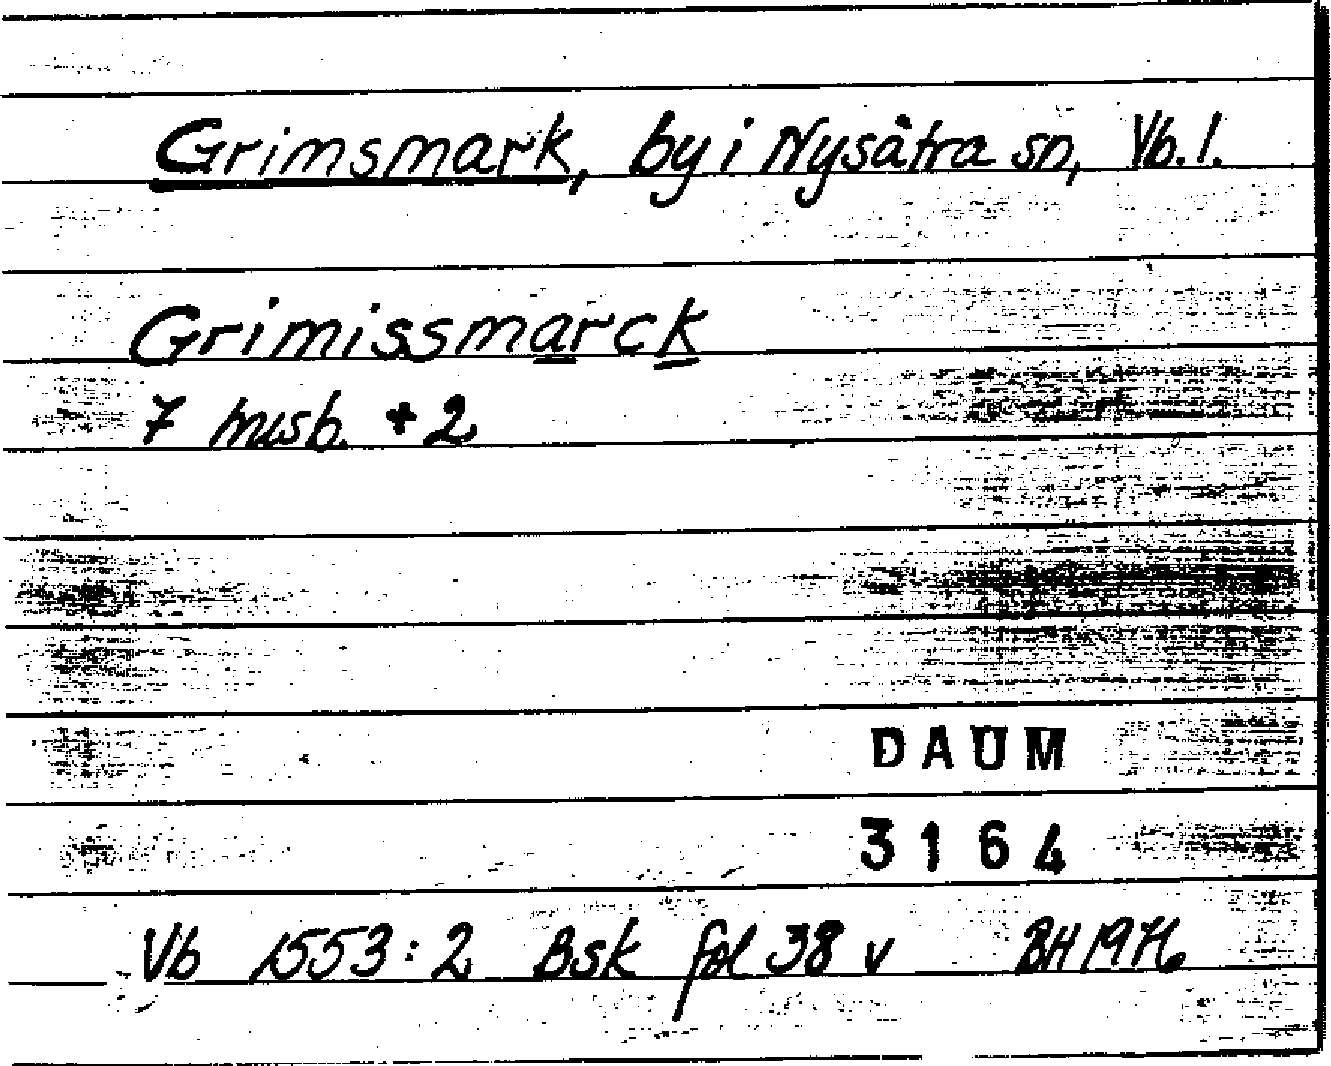 Grimsmark, by i Nysätra sn, Vb. l.
Grimissmarck
7 husb. + 2
DAUM
3164
Vb 1553:2 Bsk fol 38 v BH 1976